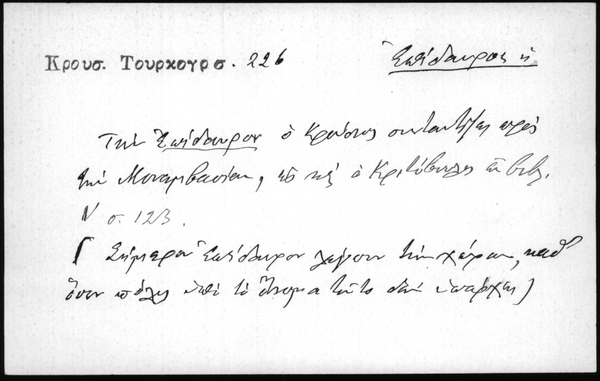 Κρουσ. Τουρκογρσ. 226
Ἐπίδαυρος ἡ
Τὴν Ἐπίδαυρον ὁ Κρούσιος συνταυτίζει πρὸς
τὴν Μονεμβασίαν, ὡς καὶ ὁ Κριτόβουλος ἐν βιβλ.
V σ. 123.
( Σήμερον Ἐπίδαυρον λέγουν τὴν χώραν, καθ'
ὅσον πόλις ὑπὸ τὸ ὄνομα τοῦτο δὲν ὑπάρχει)